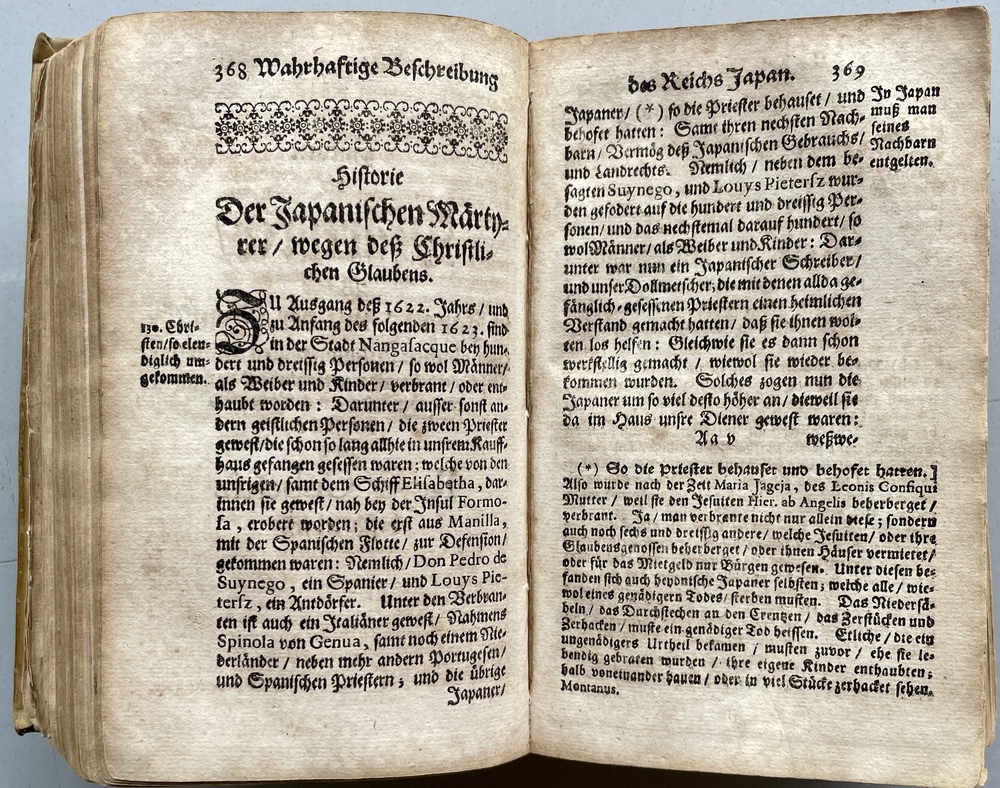 368 Wahrhaftige Beschreibung
Historie
Der Japanischen Märty-
rer / wegen deß Christli-
chen Glaubens.
130. Chri-
sten/so elen-
diglich um-
gekommen.
ZU Ausgang deß 1622. Jahrs / und
zu Anfang des folgenden 1623. sind
in der Stadt Nangasacque bey hun-
dert und dreissig Personen / so wol Männer/
als Weiber und Kinder / verbrant / oder ent-
haubt worden : Darunter / ausser sonst an-
dern geistlichen Personen / die zween Priester
gewest/die schon so lang allhie in unsrem Kauff-
haus gefangen gesessen waren ; welche von den
unsrigen / samt dem Schiff Elisabetha , dar-
innen sie gewest / nah bey der Insul Formo-
sa , erobert worden ; die erst aus Manilla,
mit der Spanischen Flotte / zur Defension/
gekommen waren: Nemlich / Don Pedro de
Suynego, ein Spanier / und Louys Pie-
tersz , ein Antdörfer. Unter den Verbran-
ten ist auch ein Italiäner gewest / Nahmens
Spinola von Genua, samt noch einem Nie-
derländer / neben mehr andern Portugesen/
und Spanischen Priestern ; und die übrige
Japaner/
des Reichs Japan. 369
Japaner / (*) so die Priester behauset / und
behofet hatten : Samt ihren nechsten Nach-
barn / Vermög deß Japanischen Gebrauchs/
und Landrechts. Nemlich / neben dem be-
sagten Suynego, und Louys Pietersz wur-
den gefodert auf die hundert und dreissig Per-
sonen / und das nechstemal darauf hundert / so
wol Männer / als Weiber und Kinder : Dar-
unter war nun ein Japanischer Schreiber /
und unser Dollmetscher, die mit denen allda ge-
fänglich-gesessenen Priestern einen heimlichen
Verstand gemacht hatten / daß sie ihnen wol-
ten los helfen : Gleichwie sie es dann schon
werkstellig gemacht / wiewol sie wieder be-
kommen wurden. Solches zogen nun die
Japaner um so viel desto höher an / dieweil sie
da im Haus unsre Diener gewest waren:
Aa v weßwe-
In Japan
muß man
seines
Nachbarn
entgelten.
(*) So die Priester behauset und behofet hatten.]
Also wurde nach der Zeit Maria Jageja, des Leonis Confiqui
Mutter / weil sie den Jesuiten Hier. ab Angelis beherberget /
verbrant. Ja / man verbrante nicht nur allein diese ; sondern
auch noch sechs und dreissig andere / welche Jesuiten / oder ihre
Glaubensgenossen beherberget / oder ihnen Häuser vermietet /
oder für das Mietgeld nur Bürgen gewesen. Unter diesen be-
fanden sich auch heydnische Japaner selbsten; welche alle / wie-
wol eines genädigern Todes / sterben musten. Das Niedersä-
beln / das Durchstechen an den Creutzen / das Zerstücken und
Zerhacken / muste ein genädiger Tod heissen. Etliche / die ein
ungenädigers Urtheil bekamen / musten zuvor / ehe sie le-
bendig gebraten wurden / ihre eigene Kinder enthaubten;
halb voneinander hauen / oder in viel Stücke zerhacket sehen.
Montanus.